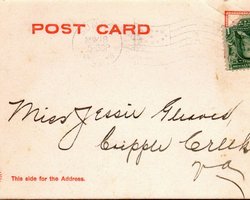 POST CARD
Miss Jessie Gleaves
Cripple Creek
Va
This side for the Address.